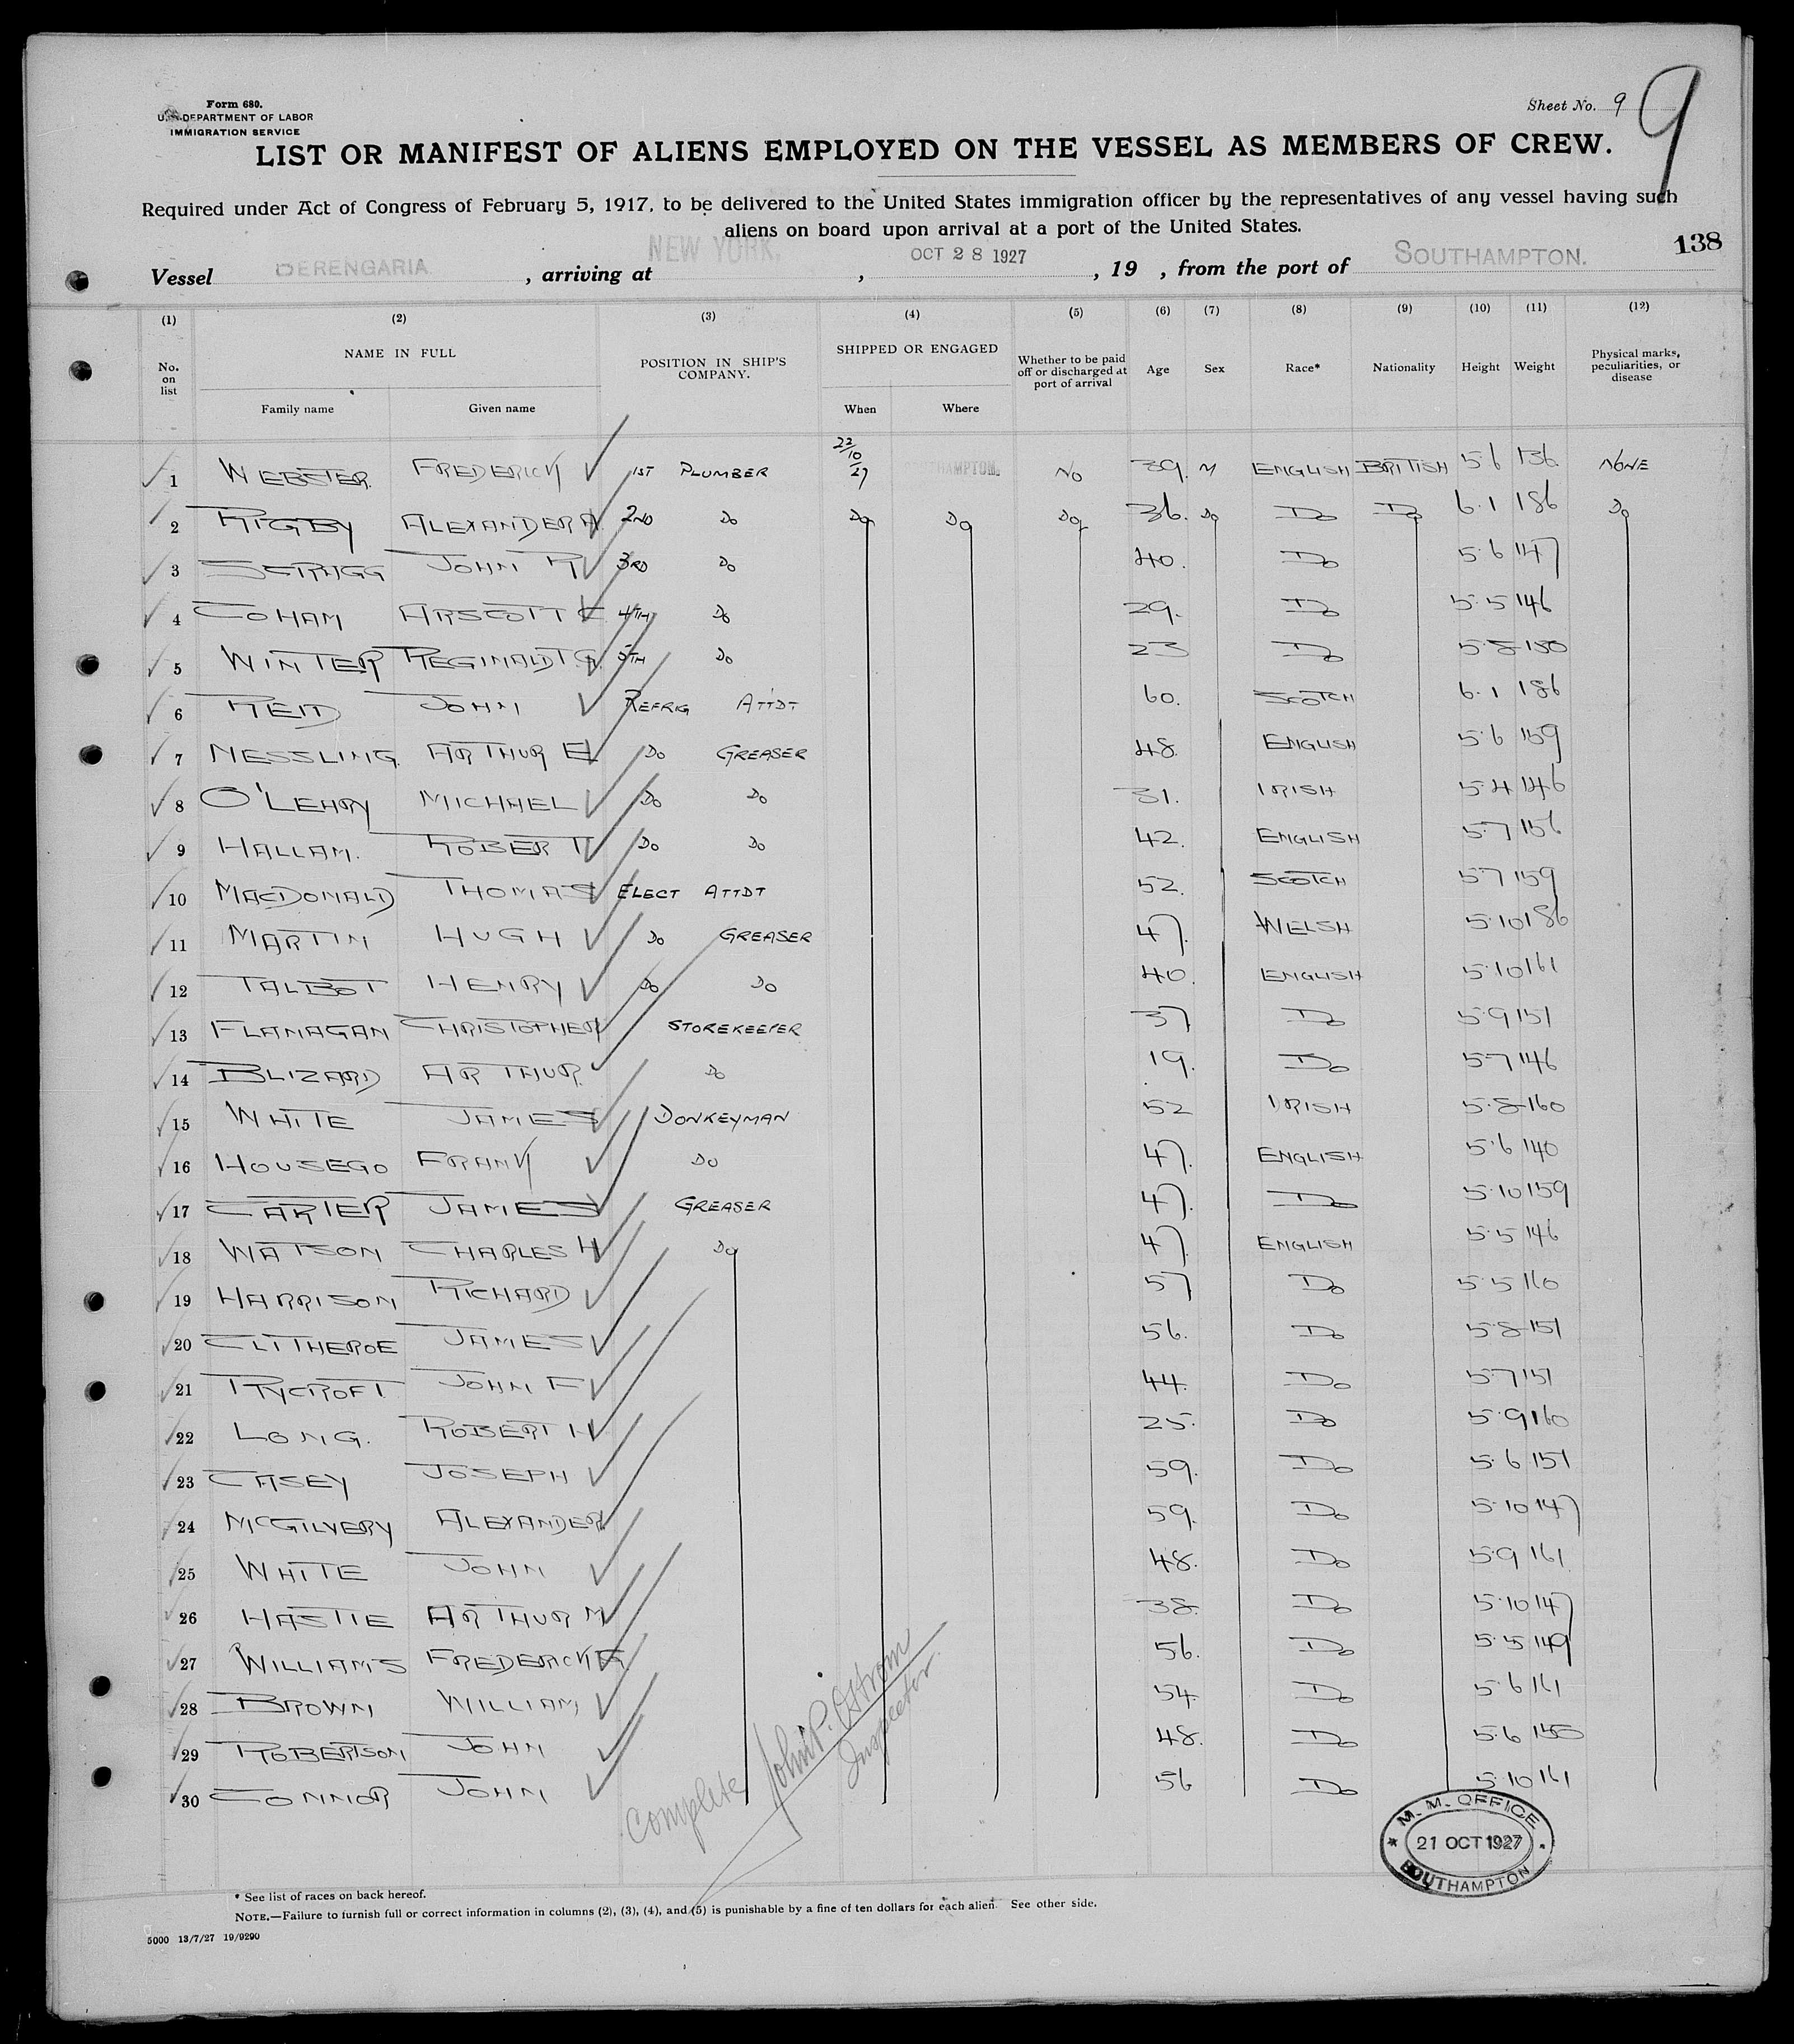 Form 680.
U. S. DEPARTMENT OF LABOR
IMMIGRATION SERVICE
Sheet No. 9
9
LIST OR MANIFEST OF ALIENS EMPLOYED ON THE VESSEL AS MEMBERS OF CREW.
Required under Act of Congress of February 5, 1917, to be delivered to the United States immigration officer by the representatives of any vessel having such
aliens on board upon arrival at a port of the United States.
138
Vessel BERENGARIA , arriving at NEW YORK, , OCT 28 1927 , 19 , from the port of SOUTHAMPTON.
(1) (2) (3) (4) (5) (6) (7) (8) (9) (10) (11) (12)
No. on list NAME IN FULL POSITION IN SHIP'S COMPANY. SHIPPED OR ENGAGED Whether to be paid off or discharged at port of arrival Age Sex Race* Nationality Height Weight Physical marks, peculiarities, or disease
Family name Given name When Where
1 WEBSTER FREDERICK 1ST PLUMBER 22/10/27 No 39. M ENGLISH BRITISH 5 6 136 NONE
2 RIGBY ALEXANDER A 2ND Do Do Do Do 36. Do Do Do 6.1 186 Do
3 SCRAGG JOHN R 3RD Do 40. Do 5.6 147
4 COHAM ARSCOTT C 4TH Do 29. Do 5.5 146
5 WINTER REGINALD T G 5TH Do 23 Do 5.8 150
6 REID JOHN REFRIG ATTDT 60. SCOTCH 6.1 186
7 NESSLING ARTHUR E Do GREASER 48. ENGLISH 5.6 159
8 O'LEARY MICHAEL Do Do 31. IRISH 5.4 146
9 HALLAM. ROBERT Do Do 42. ENGLISH 5.7 156
10 MACDONALD THOMAS ELECT ATTDT 52. SCOTCH 5.7 159
11 MARTIN HUGH Do GREASER 47. WELSH 5.10 186
12 TALBOT HENRY Do Do 40. ENGLISH 5.10 161
13 FLANAGAN CHRISTOPHER STOREKEEPER 37 Do 5.9 151
14 BLIZARD ARTHUR Do 19. Do 5.7 146
15 WHITE JAMES DONKEYMAN 52 IRISH 5.8 160
16 HOUSEGO FRANK Do 47. ENGLISH 5.6 140
17 CARTER JAMES GREASER 47. Do 5.10 159
18 WATSON CHARLES H Do 47. ENGLISH 5.5 146
19 HARRISON RICHARD 57 Do 5.5 160
20 CLITHEROE JAMES 56. Do 5.8 151
21 RYCROFT JOHN F 44. Do 5.7 151
22 LONG. ROBERT H 25. Do 5.9 160
23 CASEY JOSEPH 59. Do 5.6 151
24 MCGILVERY ALEXANDER 59. Do 5.10 147
25 WHITE JOHN 48. Do 5.9 161
26 HASTIE ARTHUR M 38. Do 5.10 147
27 WILLIAMS FREDERICK G. 56. Do 5.5 149
28 BROWN WILLIAM 54. Do 5.6 161
29 ROBERTSON JOHN 48. Do 5.6 150
30 CONNOR JOHN 56 Do 5.10 161
Complete John P. Ostrom
Inspector
M. M. OFFICE
21 OCT 1927
SOUTHAMPTON
* See list of races on back hereof.
NOTE.—Failure to furnish full or correct information in columns (2), (3), (4), and (5) is punishable by a fine of ten dollars for each alien. See other side.
5000 13/7/27 19/9290